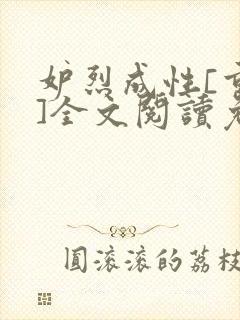 妒烈成性[重
]全文閱讀免
圓滾滾的荔枝